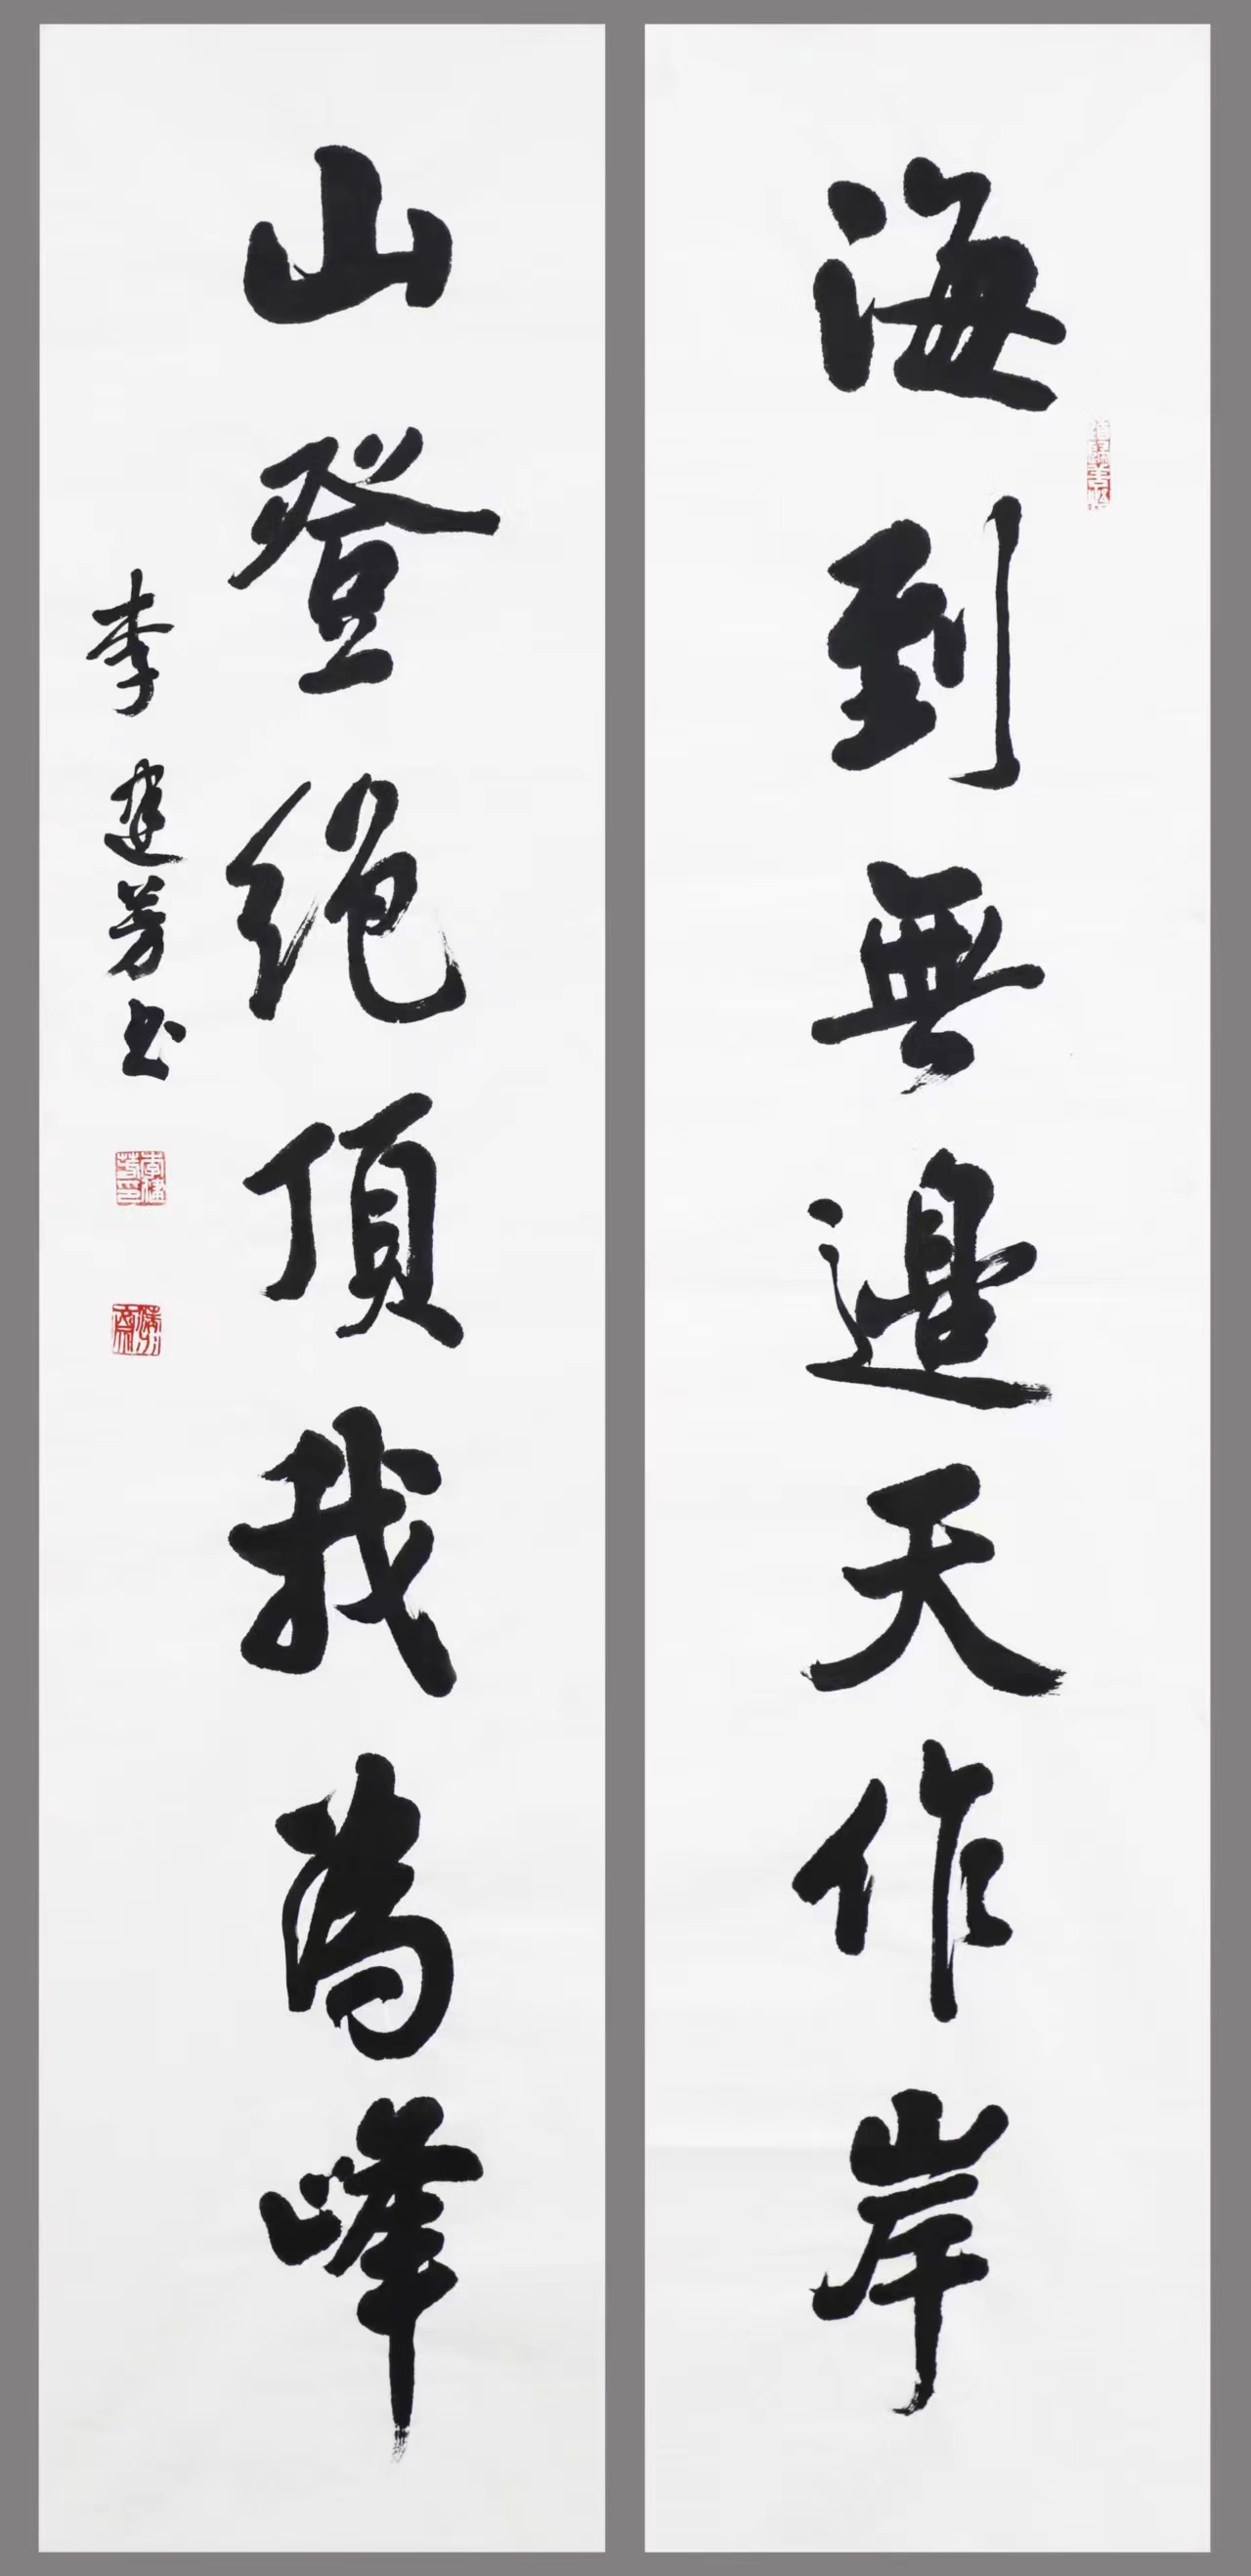 海到無邊天作岸
山登絶頂我為峰
李建芳书